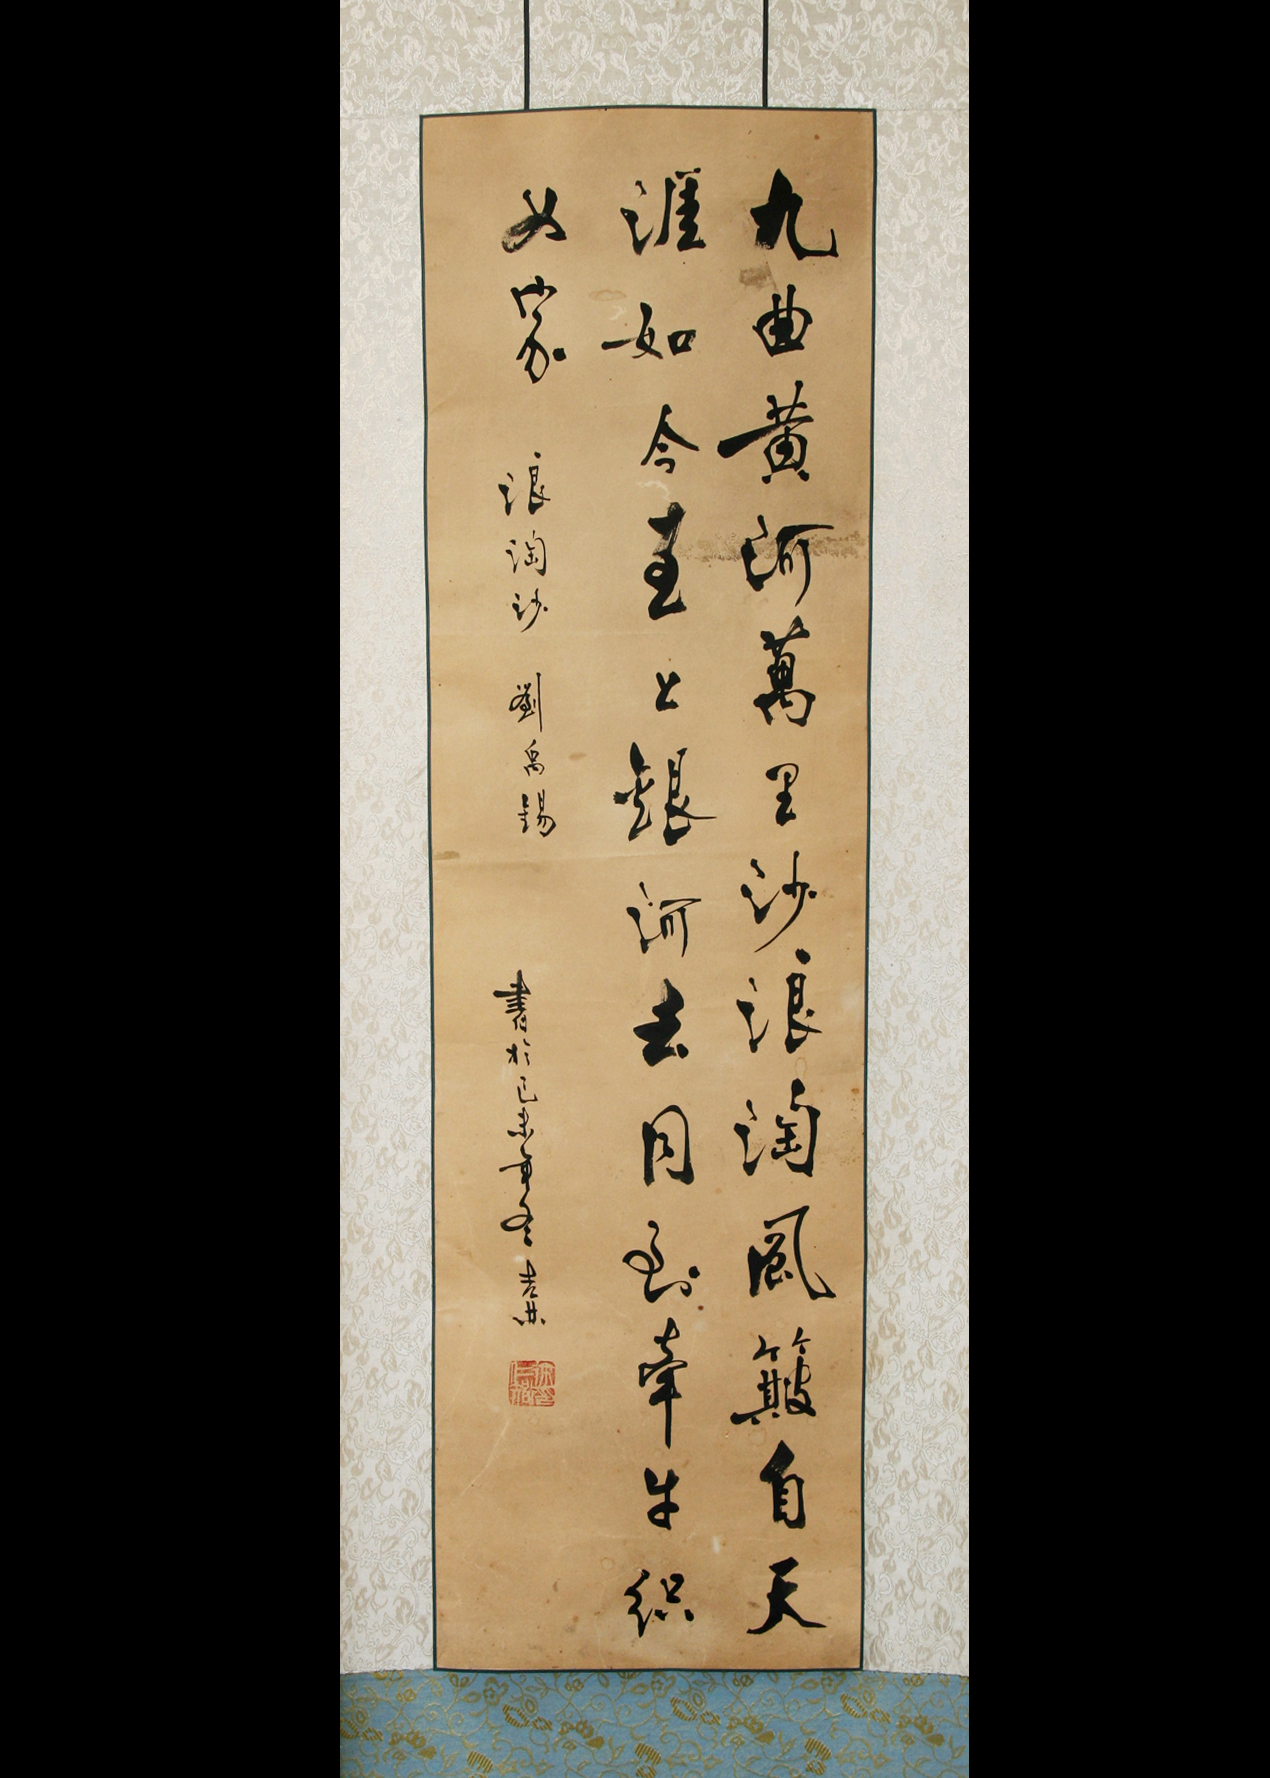 九曲黃河萬里沙浪淘風簸自天
涯如今直上銀河去同到牽牛織
女家 浪淘沙 劉禹錫 書於己未年冬